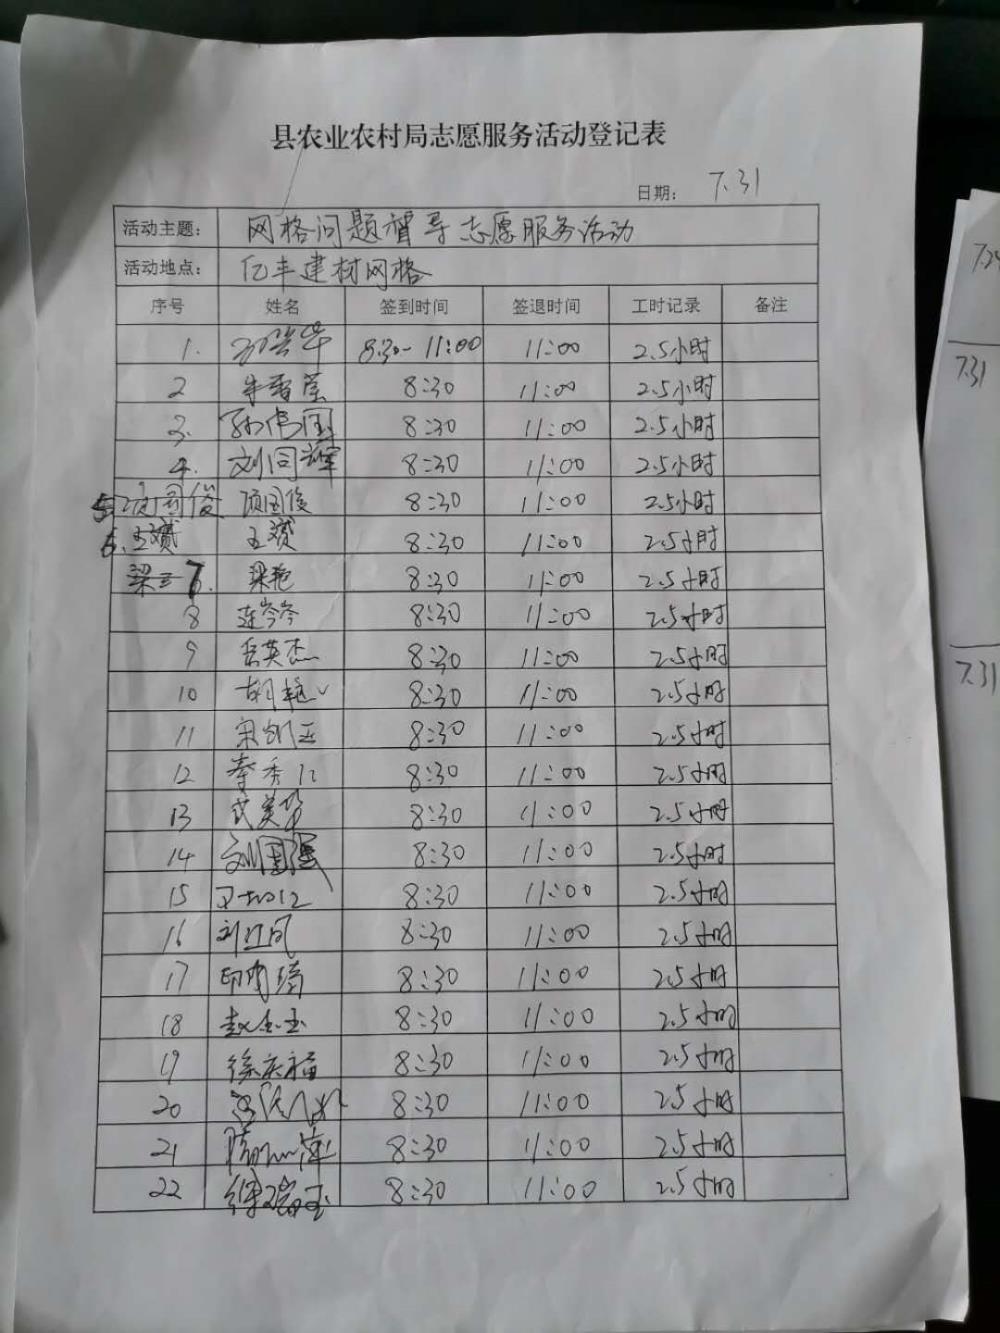 县农业农村局志愿服务活动登记表
日期： 7.31
活动主题： 网格问题督导志愿服务活动
活动地点： 亿丰建材网格
序号 姓名 签到时间 签退时间 工时记录 备注
1. 8:30-11:00 11:00 2.5小时
2 8:30 11:00 2.5小时
3. 孙伟国 8:30 11:00 2.5小时
4. 刘同辉 8:30 11:00 2.5小时
国俊 顶国俊 8:30 11:00 2.5小时
6. 王赟 王赟 8:30 11:00 2.5小时
梁 7. 梁艳 8:30 11:00 2.5小时
8 连岑岑 8:30 11:00 2.5小时
9 岳英杰 8:30 11:00 2.5小时
10 胡艳 8:30 11:00 2.5小时
11 8:30 11:00 2.5小时
12 秦秀 8:30 11:00 2.5小时
13 武美华 8:30 11:00 2.5小时
14 刘国强 8:30 11:00 2.5小时
15 8:30 11:00 2.5小时
16 刘江风 8:30 11:00 2.5小时
17 8:30 11:00 2.5小时
18 赵金玉 8:30 11:00 2.5小时
19 徐庆福 8:30 11:00 2.5小时
20 8:30 11:00 2.5小时
21 8:30 11:00 2.5小时
22 8:30 11:00 2.5小时
7.31
7.31